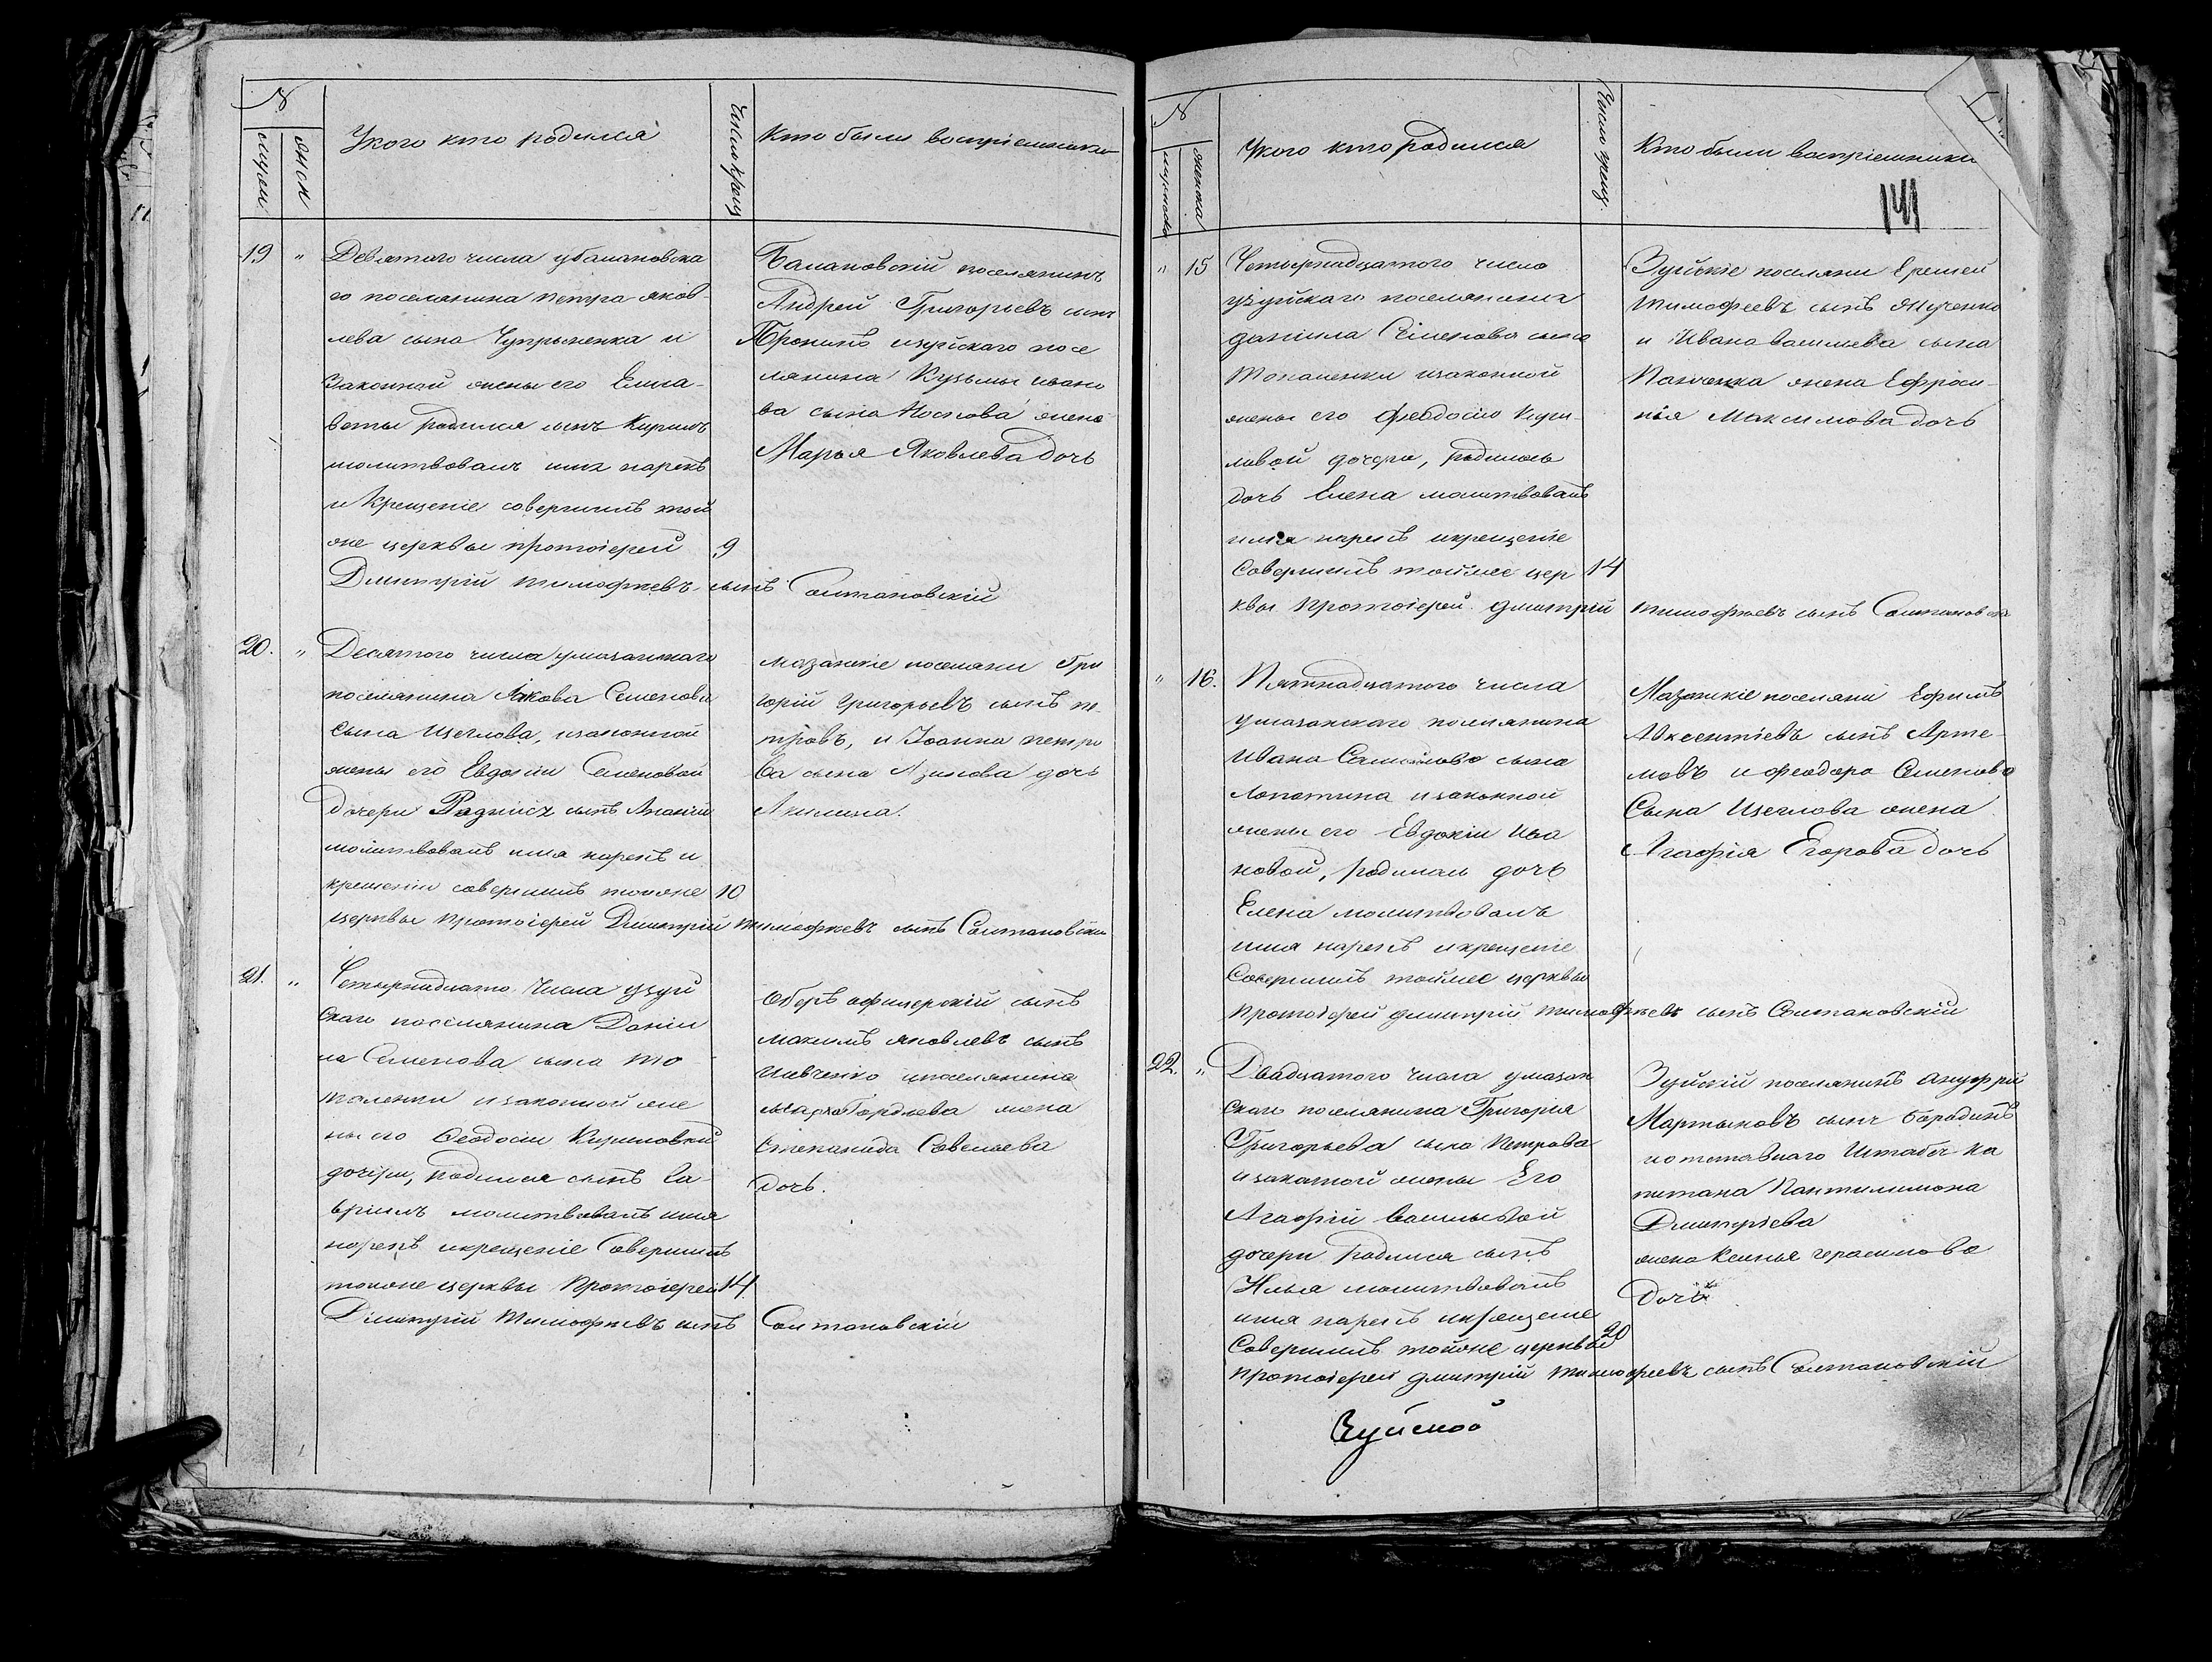 №
мужск
женск
У кого кто родился
Число крещ
Кто были воспріемники
19 „ Девятого числа убалановска
го поселянина Петра Яков-
лева сына Чупрыненка и
Законной жены его Елиса-
веты родился сынъ Кирилъ
молитвовалъ имя нарекъ
и Крещеніе совершилъ той
же церквы протоіерей 9
Дмитрій Тимофѣевъ сынъ Солтановскій
Балановскій поселянинъ
Андрей Григорьевъ сынъ
Пронинъ изуйскаго посе
лянина Кузьмы ивано
ва сына Носкова жена
Марья Яковлева дочь
20. „ Десятого числа умазанскаго
поселянина Якова Семенова
Сына Щеглова, изаконной
жены его Евдокіи Семеновой
дочери Родился сынъ Ананій
молитвовалъ имя нарекъ и
крещеніи совершилъ тойже 10
церквы протоіерей Дмитрій Тимофѣевъ сынъ Солтановскій
Мазанскіе поселяни Гри
горій Григорьевъ сынъ Пе-
тровъ, и Іоанна петро
ва сына дочь
Акилина.
21. „ Четырнадцато числа узуй
скаго поселянина Даніи
ла Семенова сына То-
таленки изаконной же
ны его Феодосіи Кириловой
дочери, родился сынъ Га-
вріилъ молитвовалъ имя
нарекъ икрещеніе Совершилъ
тойже церквы Протоіерей 14
Дімитрій Тимофѣевъ сынъ Солтановскій
Оберъ офицерскій сынъ
Максимъ Яковлевъ сынъ
Шевченко ипоселянина
Гордѣева жена
Степанида Савельева
дочь.
№
мужеска
женска
У кого кто родился
Число крещ.
Кто были воспріемники
141
„ 15 Четырнадцатого число
узуйскаго поселянина
даніила Семенова сына
Тоталенки изаконной
жены его Феодосіи Кири-
ловой дочери, родилась
дочь Елена молитвовалъ
имя нарекъ икрещеніе
Совершилъ тойже цер 14
квы Протоіерей дмитрій тимофѣевъ сынъ Солтановскі
Зуйскіе поселяни Еремей
Тимофеевъ сынъ
и Ивана василева сына
Панченка жена Ефроси-
нія Максимова дочь
„ 16. Пятнадцатого числа
умазанскаго поселянина
Ивана Самойлова сына
Лопатина изаконной
жены его Евдокіи Ива
новой, родилась дочь
Елена молитвовалъ
имя нарекъ икрещеніе
Совершилъ тойже церквы
протоіерей дмитрій тимофѣевъ сынъ Солтановскій
Мазанскіе поселяни Ефимъ
Авксентіевъ сынъ Арте-
мовъ и феодора Семенова
Сына Щеглова жена
Агафія Егорова дочь
22. „ Двадцатого числа умазан
скаго поселянина Григорія
Григорьева сына Петрова
изаконной жены Его
Агафіи Василевой
дочери родился сынъ
Илья молитвовалъ
имя нарекъ икрещеніе
Совершилъ тойже церквы 20
протоіерей дмитрій тимофеевъ сынъ Солтановскій
Зуйскій поселянинъ Ануфрій
Мартыновъ сынъ Бородинъ
иотставнаго Штабсъ ка
питана Пантилимона
Дмитріева
жена Ксенья герасимова
дочь
Зуйской